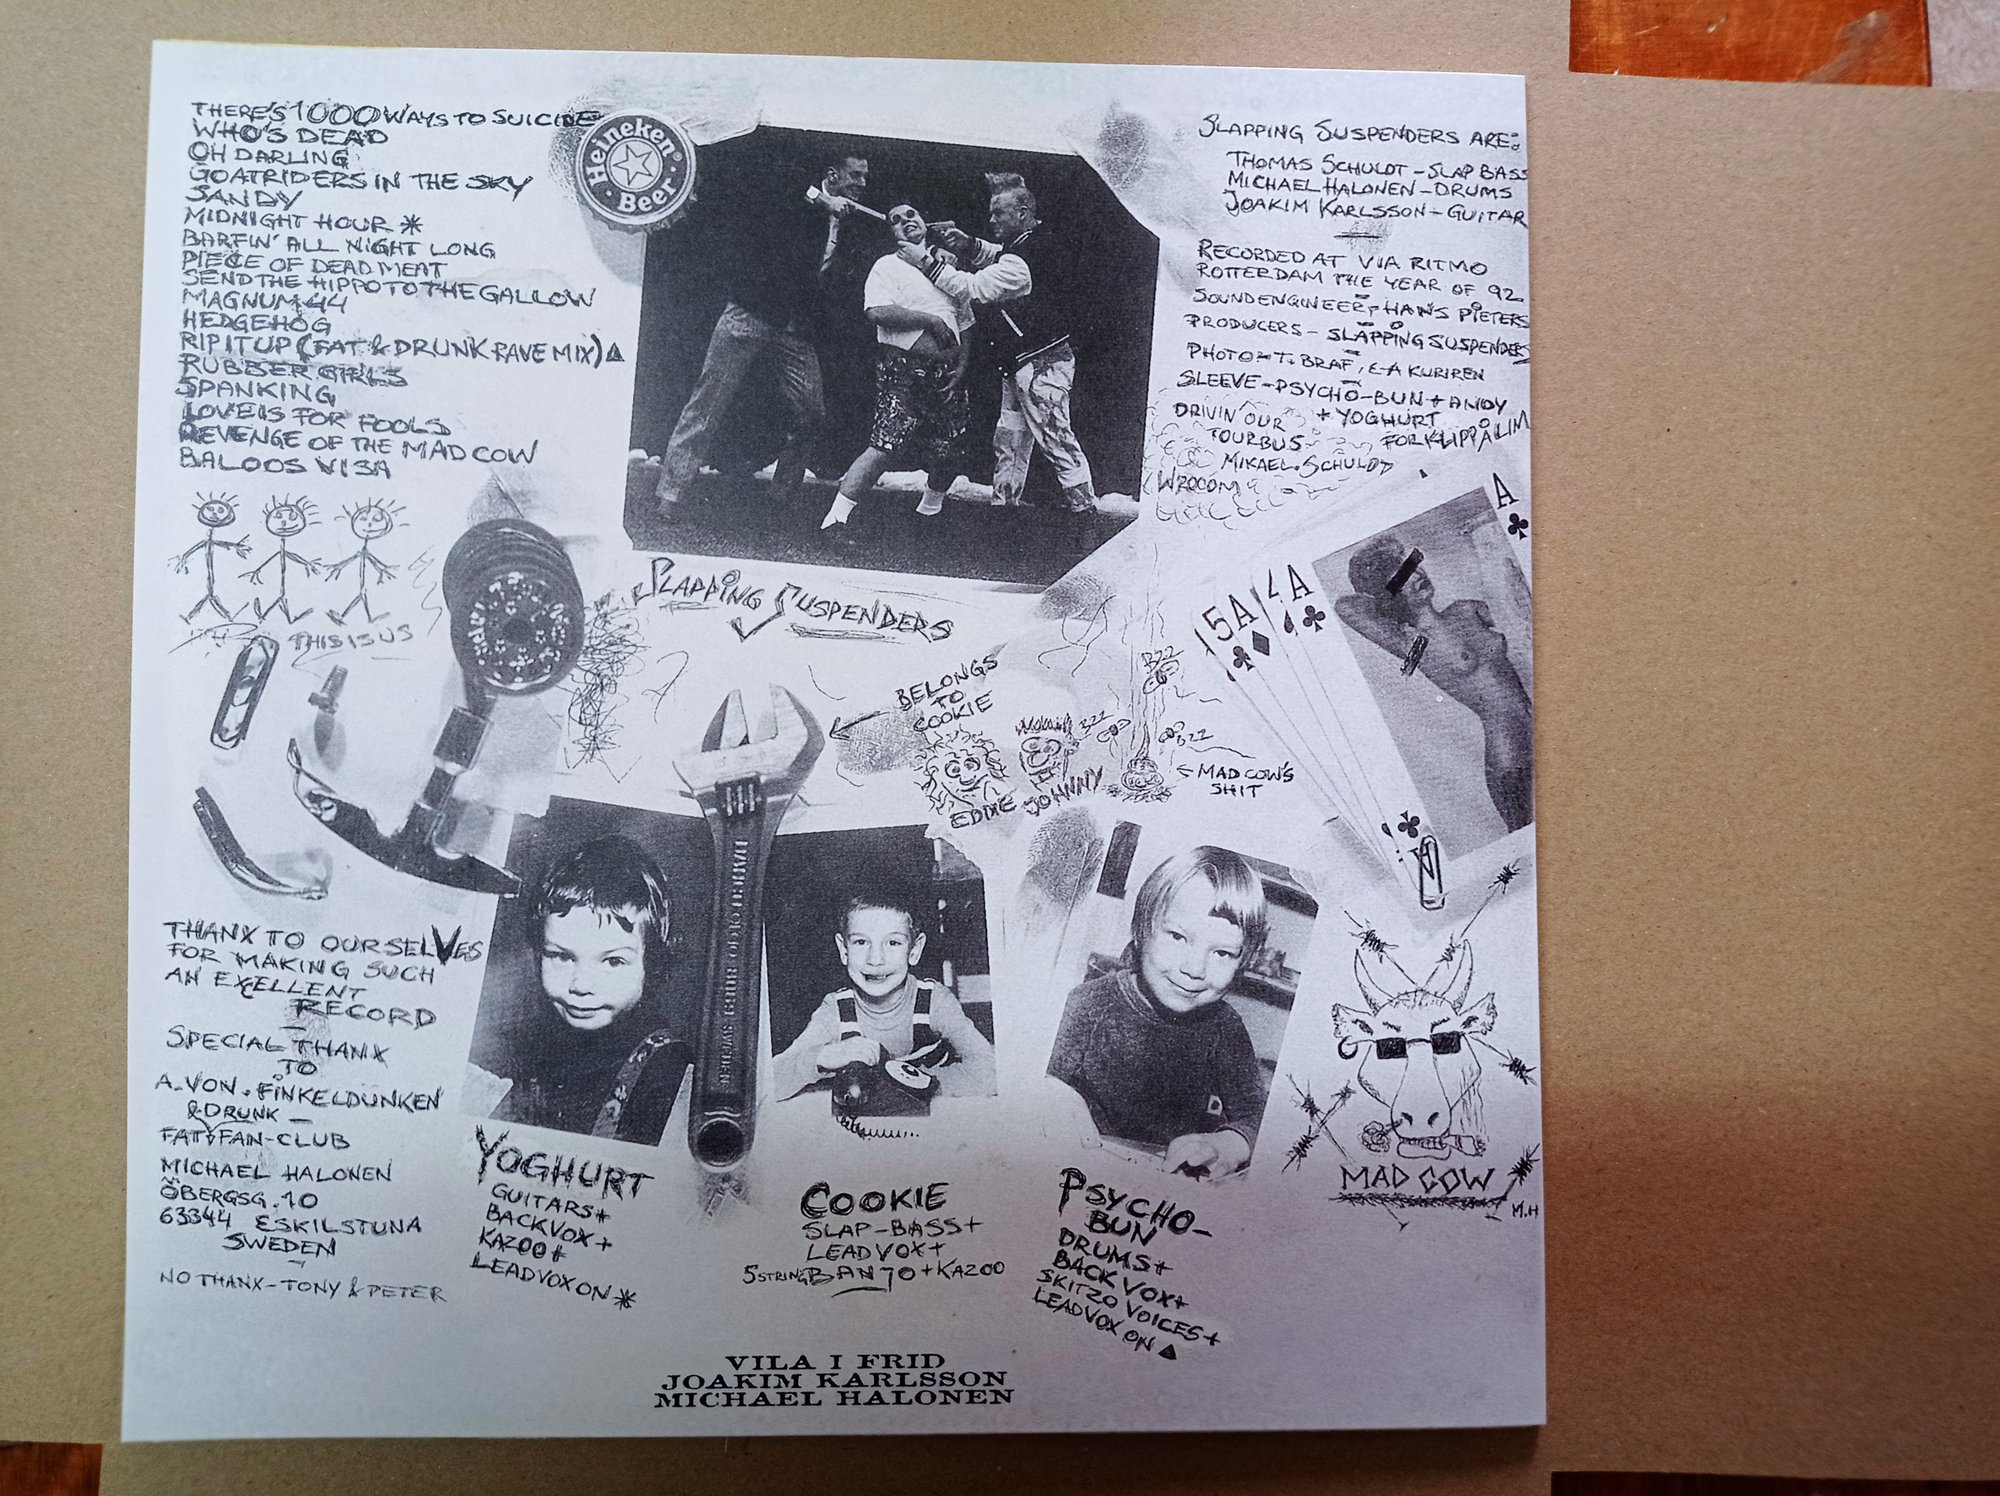 THERE'S 1000 WAYS TO SUICIDE
WHO'S DEAD
OH DARLING
GOATRIDERS IN THE SKY
SANDY
MIDNIGHT HOUR *
BARFIN' ALL NIGHT LONG
PIECE OF DEAD MEAT
SEND THE HIPPO TO THE GALLOW
MAGNUM 44
HEDGEHOG
RIP IT UP (FAT & DRUNK RAVE MIX) ▲
RUBBER GIRLS
SPANKING
LOVE IS FOR FOOLS
REVENGE OF THE MAD COW
BALOOS VISA
THIS IS US
Heineken®
Beer
SLAPPING SUSPENDERS
SLAPPING SUSPENDERS ARE:
THOMAS SCHULDT - SLAP BASS
MICHAEL HALONEN - DRUMS
JOAKIM KARLSSON - GUITAR
RECORDED AT VIA RITMO
ROTTERDAM THE YEAR OF 92
SOUNDENGINEER - HANS PIETERS
PRODUCERS - SLAPPING SUSPENDERS
PHOTO - T. BRAF, E-A KURIREN
SLEEVE - PSYCHO-BUN + ANDY
+ YOGHURT
FOR KLIPPÅLIM
DRIVIN' OUR
TOURBUS
MIKAEL SCHULDT
WROOM
A
5 A 4 A
A
BELONGS
TO
COOKIE
EDDIE
JOHNNY
BZZ
BZZ
BZZ
← MAD COW'S
SHIT
THANX TO OURSELVES
FOR MAKING SUCH
AN EXELLENT
RECORD
SPECIAL THANX
TO
A. VON. FINKELDUNKEN
& DRUNK
FAT FAN-CLUB
MICHAEL HALONEN
ÖBERGSG. 10
63344 ESKILSTUNA
SWEDEN
NO THANX - TONY & PETER
YOGHURT
GUITARS +
BACKVOX +
KAZOO +
LEADVOX ON *
COOKIE
SLAP-BASS +
LEADVOX +
5 STRING BANJO + KAZOO
PSYCHO-
BUN
DRUMS +
BACK VOX +
SKITZO VOICES +
LEADVOX ON ▲
MAD COW
M.H
VILA I FRID
JOAKIM KARLSSON
MICHAEL HALONEN